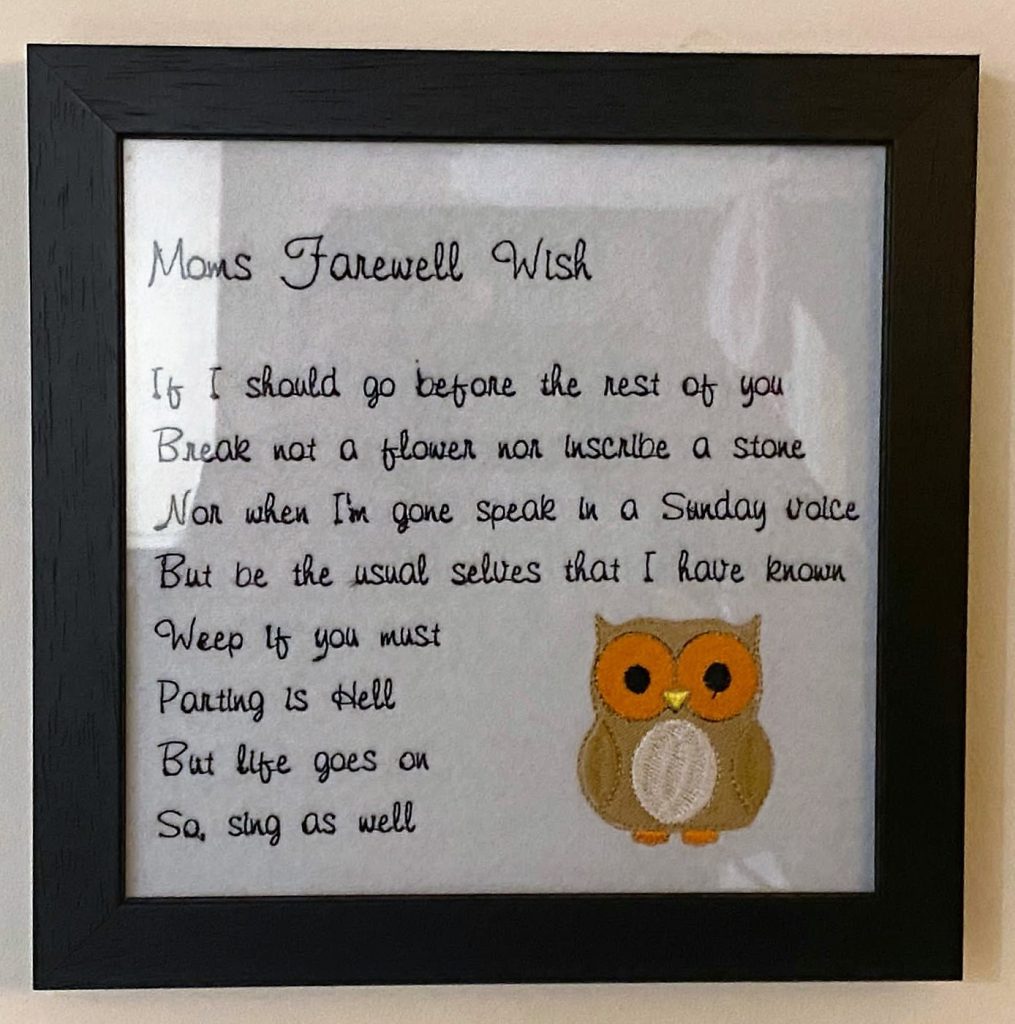 Moms Farewell Wish
If I should go before the rest of you
Break not a flower nor inscribe a stone
Nor when I'm gone speak in a Sunday voice
But be the usual selves that I have known
Weep if you must
Parting is Hell
But life goes on
So, sing as well